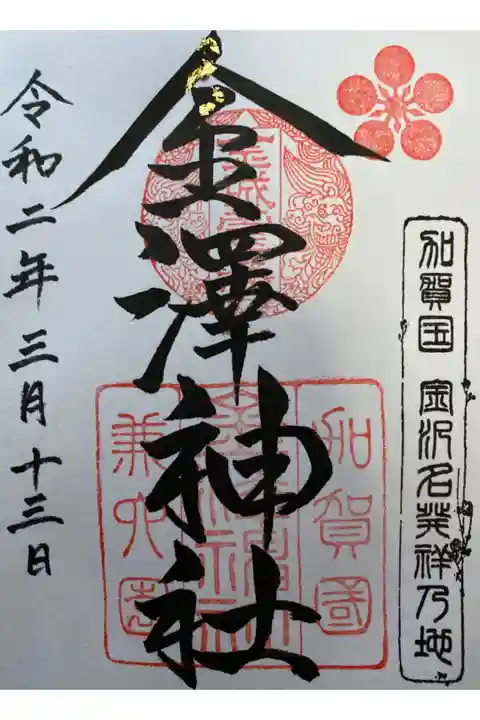 加賀国 金沢名発祥乃地
金澤神社
加賀國
兼六園
令和二年三月十三日